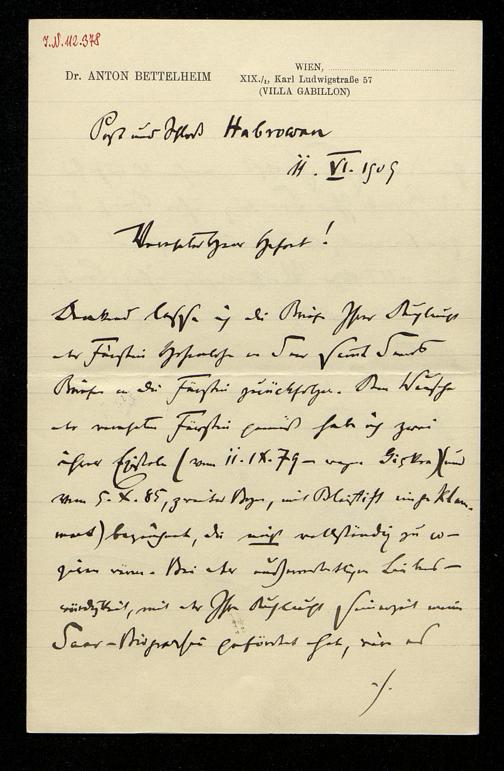 I.N. 112.378
WIEN,
Dr. ANTON BETTELHEIM
XIX./1, Karl Ludwigstraße 57
(VILLA GABILLON)
Post und Schloß Habrowan
11. VI. 1909
Verehrter Herr Hofrat!
Dankend lasse ich die Briefe Ihrer Durchlaucht
der Fürstin Hohenlohe an Saar sammt Saars
Briefen an die Fürstin zurückfolgen. Dem Wunsche
der verehrten Fürstin gemäß habe ich zwei
ihrer Episteln (vom 11. IX. 79 – wegen Giskra) (und
vom 5. X. 85, zweiter Bogen, mit Bleistift eingeklam-
mert) bezeichnet, die nicht vollständig zu co-
piren wären. Bei der außerordentlichen Liebens-
würdigkeit, mit der Ihre Durchlaucht seinerzeit meine
Saar-Biographie gefördert hat, wäre es
./.